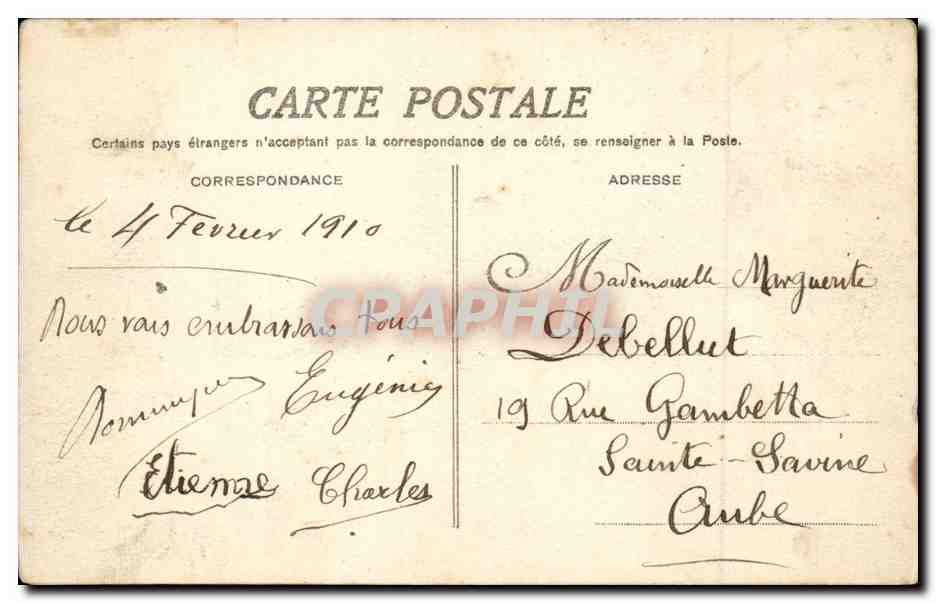 CARTE POSTALE
Certains pays étrangers n'acceptant pas la correspondance de ce côté, se renseigner à la Poste.
CORRESPONDANCE
le 4 Fevrier 1910
Nous vous embrassons tous
Dominique Eugénie
Etienne Charles
ADRESSE
Mademoiselle Marguerite
Debellut
19 Rue Gambetta
Sainte-Savine
Aube
CPAPHIL